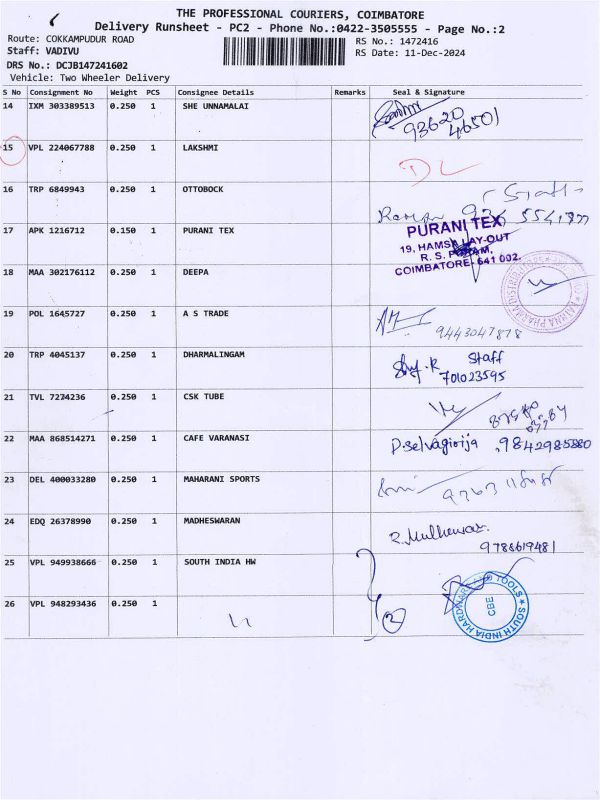 THE PROFESSIONAL COURIERS, COIMBATORE
Delivery Runsheet - PC2 - Phone No.:0422-3505555 - Page No.:2
Route: COKKAMPUDUR ROAD RS No.: 1472416
Staff: VADIVU RS Date: 11-Dec-2024
DRS No.: DCJB147241602
Vehicle: Two Wheeler Delivery
S No Consignment No Weight PCS Consignee Details Remarks Seal & Signature
14 IXM 303389513 0.250 1 SHE UNNAMALAI
93620
46501
15 VPL 224067788 0.250 1 LAKSHMI DL
16 TRP 6849943 0.250 1 OTTOBOCK
17 APK 1216712 0.150 1 PURANI TEX
PURANI TEX
19, HAMSA LAY-OUT
R. S. PURAM,
COIMBATORE- 641 002.
18 MAA 302176112 0.250 1 DEEPA
19 POL 1645727 0.250 1 A S TRADE
9443047878
20 TRP 4045137 0.250 1 DHARMALINGAM
Staff
701023595
21 TVL 7274236 0.250 1 CSK TUBE
22 MAA 868514271 0.250 1 CAFE VARANASI D.Selvagirija 9842985380
23 DEL 400033280 0.250 1 MAHARANI SPORTS
24 EDQ 26378990 0.250 1 MADHESWARAN
9786619481
25 VPL 949938666 0.250 1 SOUTH INDIA HW
26 VPL 948293436 0.250 1
2
SOUTH INDIA HARDWARE AND TOOLS
CBE